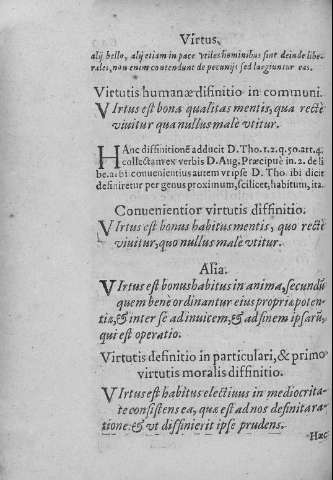 Virtus.
alij bello, alij etiam in pace vtiles hominibus sint deinde libe-
rales, non enim contendunt de pecunijs sed largiuntur eas.
Virtutis humanæ difinitio in communi.
VIrtus est bona qualitas mentis, qua recte
viuitur qua nullus male vtitur.
HAnc diffinitionē adducit D. Tho. 1.2. q. 50. art. 4.
collectam ex verbis D. Aug. Præcipue in. 2. de li
be. a. bi conuenientius autem vt ipse D. Tho ibi dicit
definiretur per genus proximum, scilicet, habitum, ita.
Conuenientior virtutis diffinitio.
VIrtus est bonus habitus mentis, quo recte
viuitur, quo nullus male vtitur.
Alia.
VIrtus est bonus habitus in anima, secundū
quem bene ordinantur eius propriæ poten-
tiæ, & inter se adinuicem, & ad finem ipsarū,
qui est operatio.
Virtutis definitio in particulari, & primo
virtutis moralis diffinitio.
VIrtus est habitus electiuus in mediocrita-
te consistens ea, quæ est ad nos definita ra-
tione & vt diffinierit ipse prudens.
Hæc